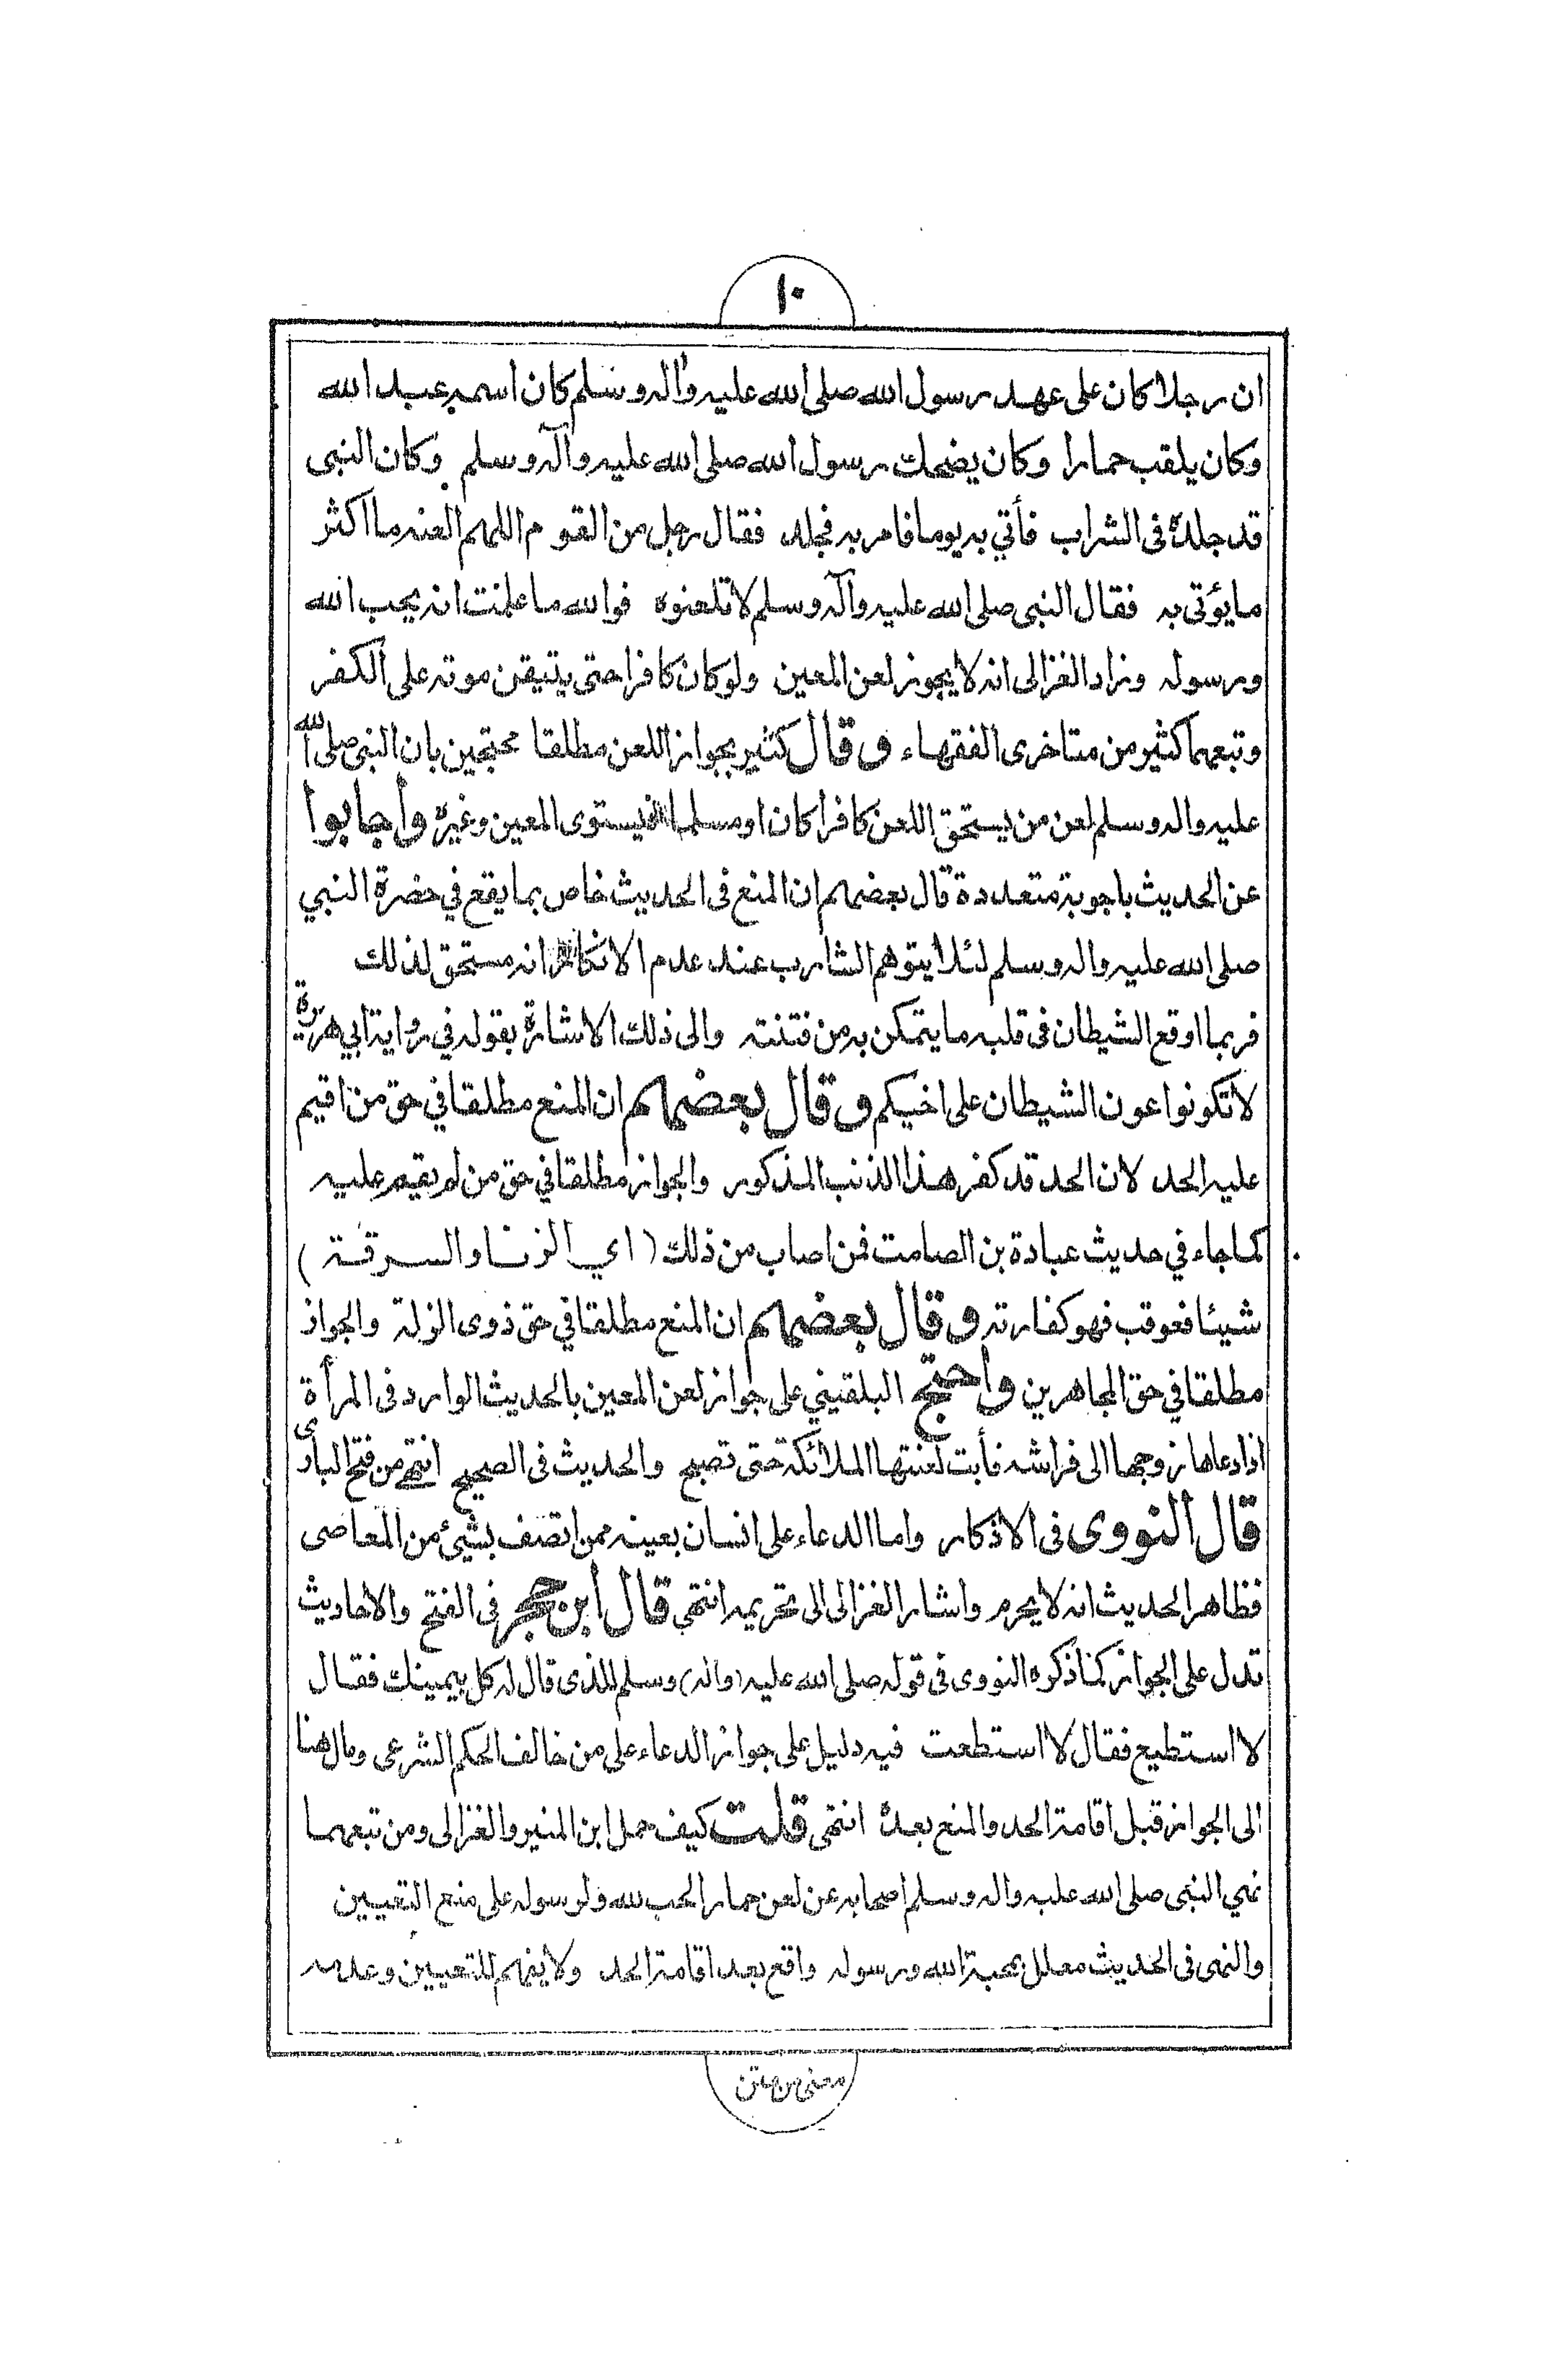 ١٠
ان رجلا كان على عهد رسول الله صلى الله عليه واله وسلم كان اسمه عبد الله
وكان يلقب حمارا وكان يضحك رسول الله صلى الله عليه وآله وسلم وكان النبى
قد جلده فى الشراب فأتي به يوما فامر به فجلد فقال رجل من القوم اللهم العنه ما اكثر
ما يؤتى به فقال النبى صلى الله عليه وآله وسلم لا تلعنوه فوالله ما علمت انه يحب الله
ورسوله وزاد الغزالى انه لا يجوز لعن المعين ولو كان كافرا حتى يتيقن موته على الكفر
وتبعهما كثير من متاخرى الفقهاء وقال كثير بجواز اللعن مطلقا محتجين بان النبى صلى الله
عليه واله وسلم لعن من يستحق اللعن كافرا كان او مسلما فيستوى المعين وغيره وأجابوا
عن الحديث باجوبة متعددة قال بعضهم ان المنع فى الحديث خاص بما يقع في حضرة النبي
صلى الله عليه واله وسلم لئلا يتوهم الشارب عند عدم الانكار انه مستحق لذلك
فربما اوقع الشيطان فى قلبه ما يتمكن به من فتنته والى ذلك الاشارة بقوله في رواية ابي هريرة
لا تكونوا عون الشيطان على اخيكم وقال بعضهم ان المنع مطلقا في حق من اقيم
عليه الحد لان الحد قد كفر هذا الذنب المذكور والجواز مطلقا في حق من لم يقم عليه
كما جاء في حديث عبادة بن الصامت فمن اصاب من ذلك (اي الزنا والسرقة)
شيئا فعوقب فهو كفارته وقال بعضهم ان المنع مطلقا في حق ذوى الزلة والجواز
مطلقا في حق المجاهرين واحتج البلقيني على جواز لعن المعين بالحديث الوارد فى المرأة
اذا دعاها زوجها الى فراشه فأبت لعنتها الملائكة حتى تصبح والحديث فى الصحيح انتهى من فتح البارى
قال النووى فى الاذكار واما الدعاء على انسان بعينه ممن اتصف بشيئ من المعاصى
فظاهر الحديث انه لا يحرم واشار الغزالى الى تحريمه انتهى قال ابن حجر فى الفتح والاحاديث
تدل على الجواز كما ذكره النووى فى قوله صلى الله عليه (واله) وسلم للذى قال له كل بيمينك فقال
لا استطيع فقال لا استطعت فيه دليل على جواز الدعاء على من خالف الحكم الشرعى ومال هنا
الى الجواز قبل اقامة الحد والمنع بعده انتهى قلت كيف حمل ابن المنير والغزالى ومن تبعهما
نهي النبى صلى الله عليه واله وسلم اصحابه عن لعن حمار الحب لله ولرسوله على منع التعيين
والنهى فى الحديث معلل بمحبة الله ورسوله واقع بعد اقامة الحد ولا يفهم للتعيين وعدمه
معنى من متن